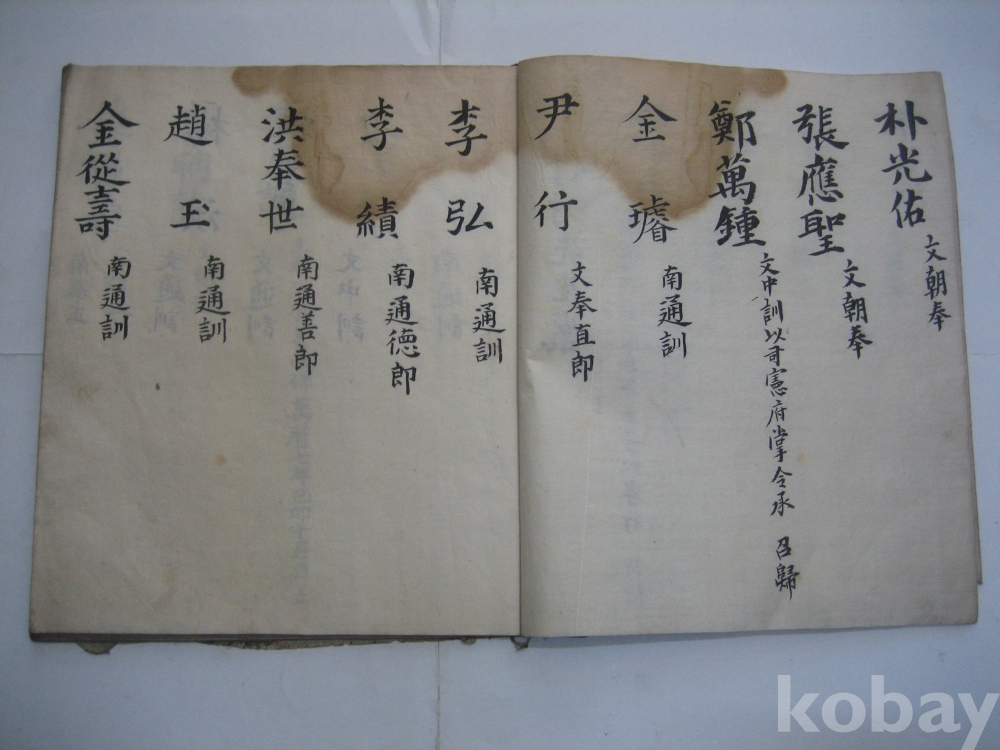 朴光佑 文朝奉
張應聖 文朝奉
鄭萬鍾 文中訓以司憲府掌令承 召歸
金璿 南通訓
尹行 文奉直郎
李弘 南通訓
李績 南通德郎
洪奉世 南通善郎
趙玉 南通訓
金從壽 南通訓
kobay